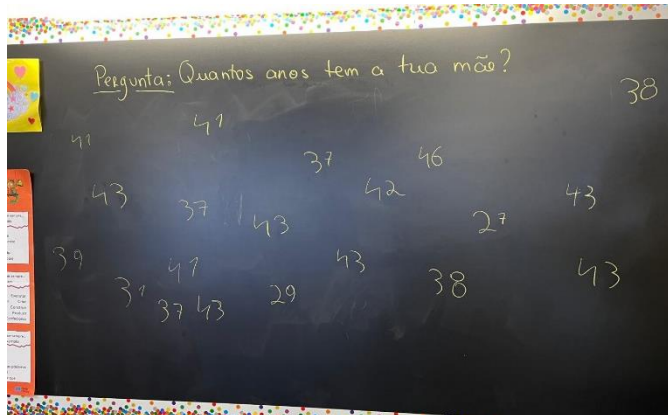 Pergunta: Quantos anos tem a tua mãe?
38
41 41
37 46
43 37 43 42 27 43
39 41 43
31 37 43 29 38 43